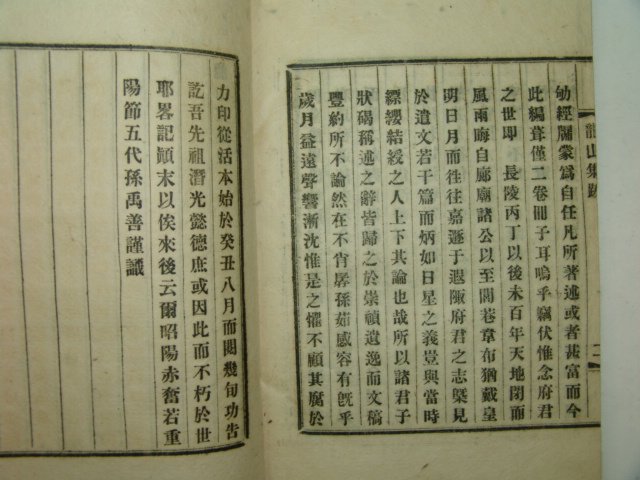 龍山集跋
二
幼經關蒙爲自任凡所著述或者甚富而今
此編葺僅二卷冊子耳嗚乎竊伏惟念府君
之世卽 長陵丙丁以後未百年天地閉而
風雨晦自廊廟諸公以至閭巷韋布猶戴皇
明日月而往往嘉遯于遐陬府君之志槩見
於遺文若干篇而炳如日星之義豈與當時
縹纓結綬之人上下其論也哉所以諸君子
狀碣稱述之辭皆歸之於崇禎遺逸而文稿
豐約所不論然在不肖孱孫茹感容有旣乎
歲月益遠聲響漸沈惟是之懼不顧其腐於
力印從活本始於癸丑八月而閱幾旬功告
訖吾先祖潛光懿德庶或因此而不朽於世
耶畧記顚末以俟來後云爾昭陽赤奮若重
陽節五代孫禹善謹識